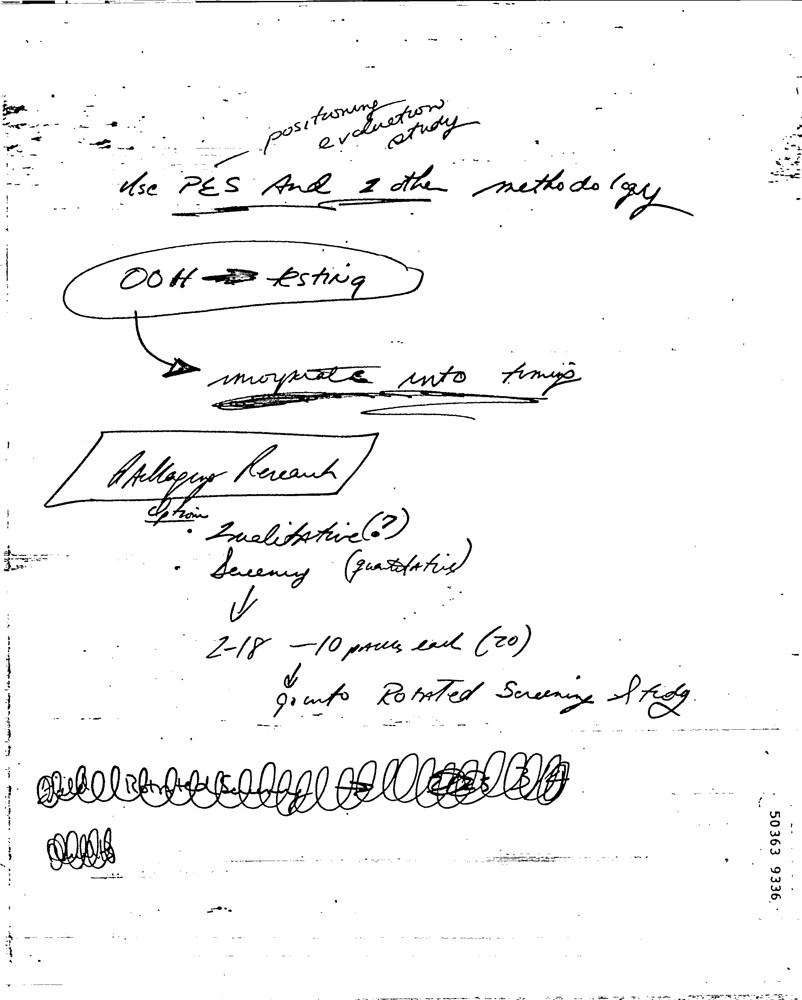 positioning
evaluation
study
Use PES And 2 other methodology
OOH → testing
incorporate into timings
Packaging Research
Option
• Qualitative (?)
• Screening (quantitative)
2-18 - 10 packs each (20)
go into Rotated Screening Study
Rotated Screening
50363 9336